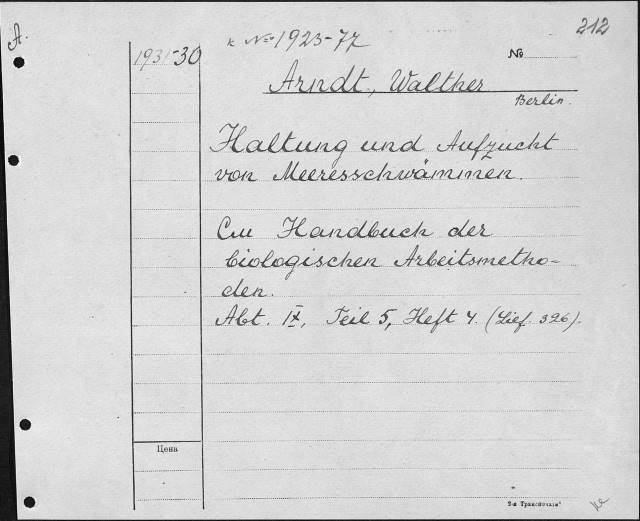 A.
212
к №º 1923-77
1931-30
№
Arndt, Walther
Berlin.
Haltung und Aufzucht
von Meeresschwämmen.
См Handbuch der
biologischen Arbeitsmetho-
den.
Abt. IX, Teil 5, Heft 4. (Lief. 326).
Цена